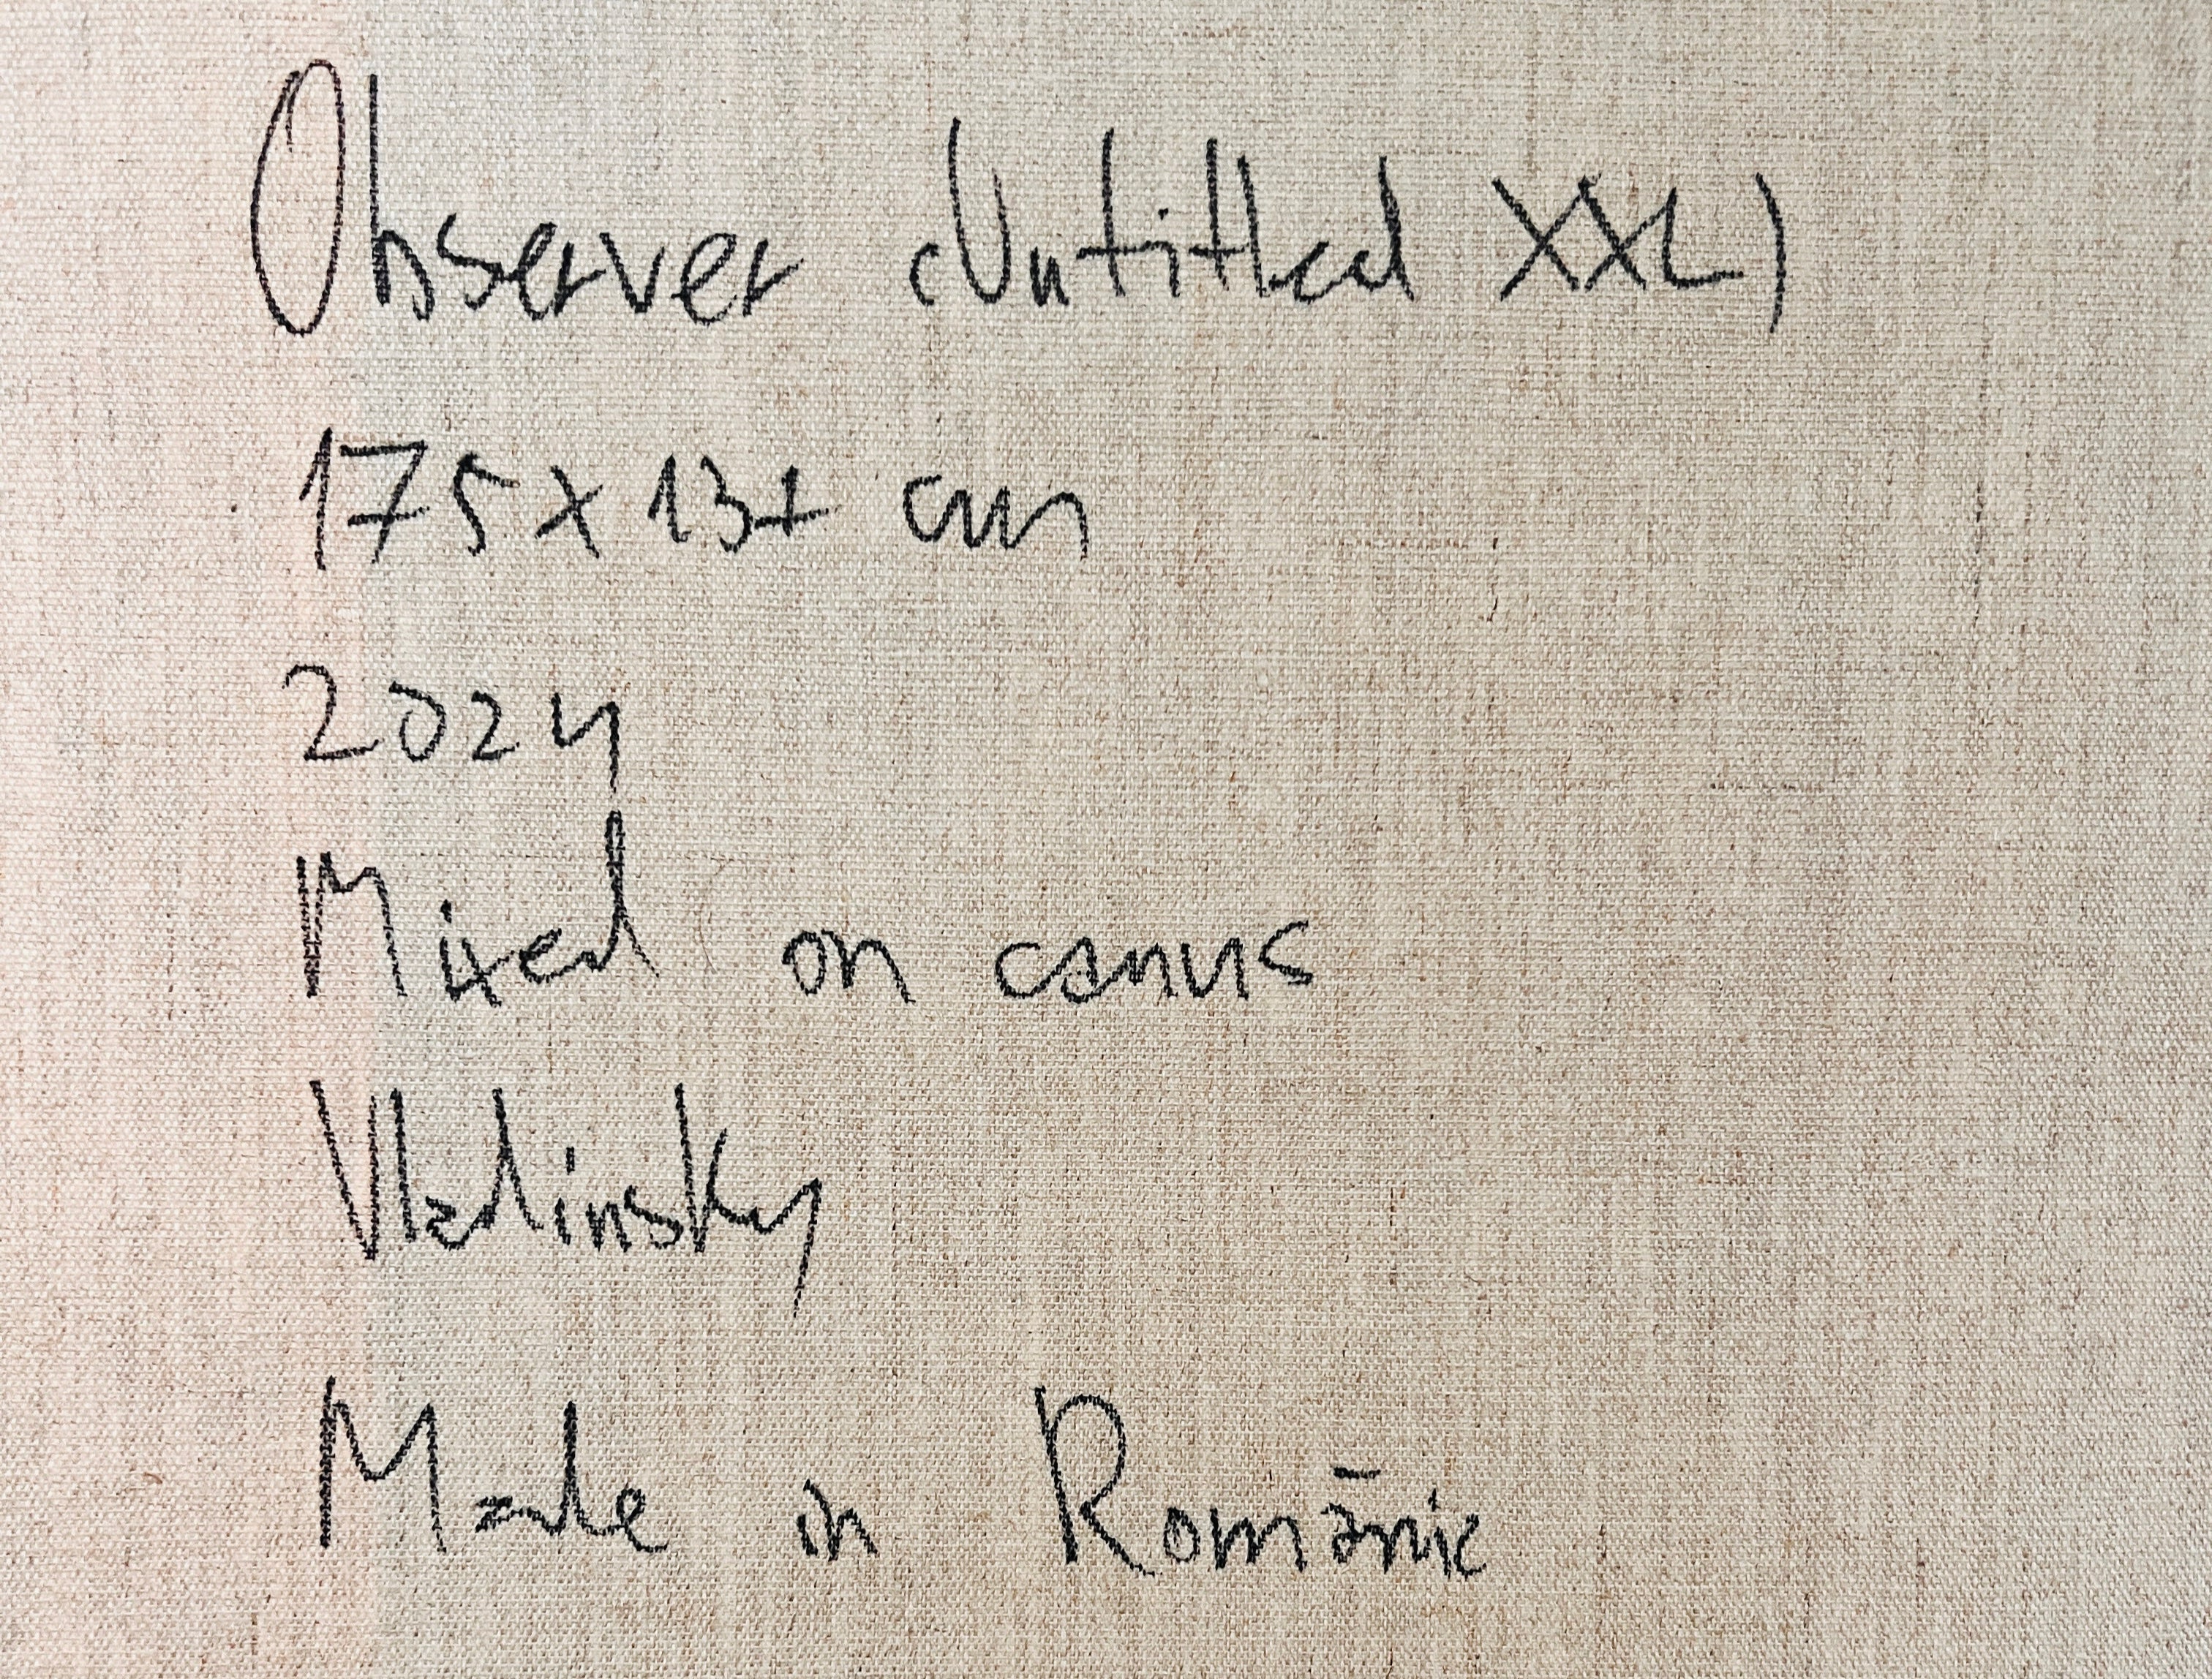 Observer (Untitled XXL)
175 x 137 cm
2024
Mixed on canvs
Vladinsky
Made in România